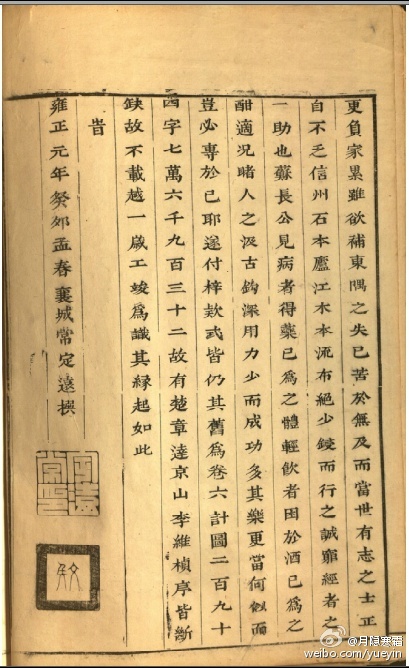 更負家累雖欲補東隅之失已苦於無及而當世有志之士正
自不乏信州石本廬江木本流布絕少鋟而行之誠窮經者之
一助也蘇長公見病者得藥已爲之體輕飲者困於酒已爲之
酣適況睹人之汲古鈎深用力少而成功多其樂更當何似而
豈必專於己耶遂付梓款式皆仍其舊爲卷六計圖二百九十
四字七萬六千九百三十二故有楚章達京山李維楨序皆斷
缺故不載越一歲工竣爲識其緣起如此
昔
雍正元年癸卯孟春襄城常定遠撰
@月隐寒霜
weibo.com/yueyin